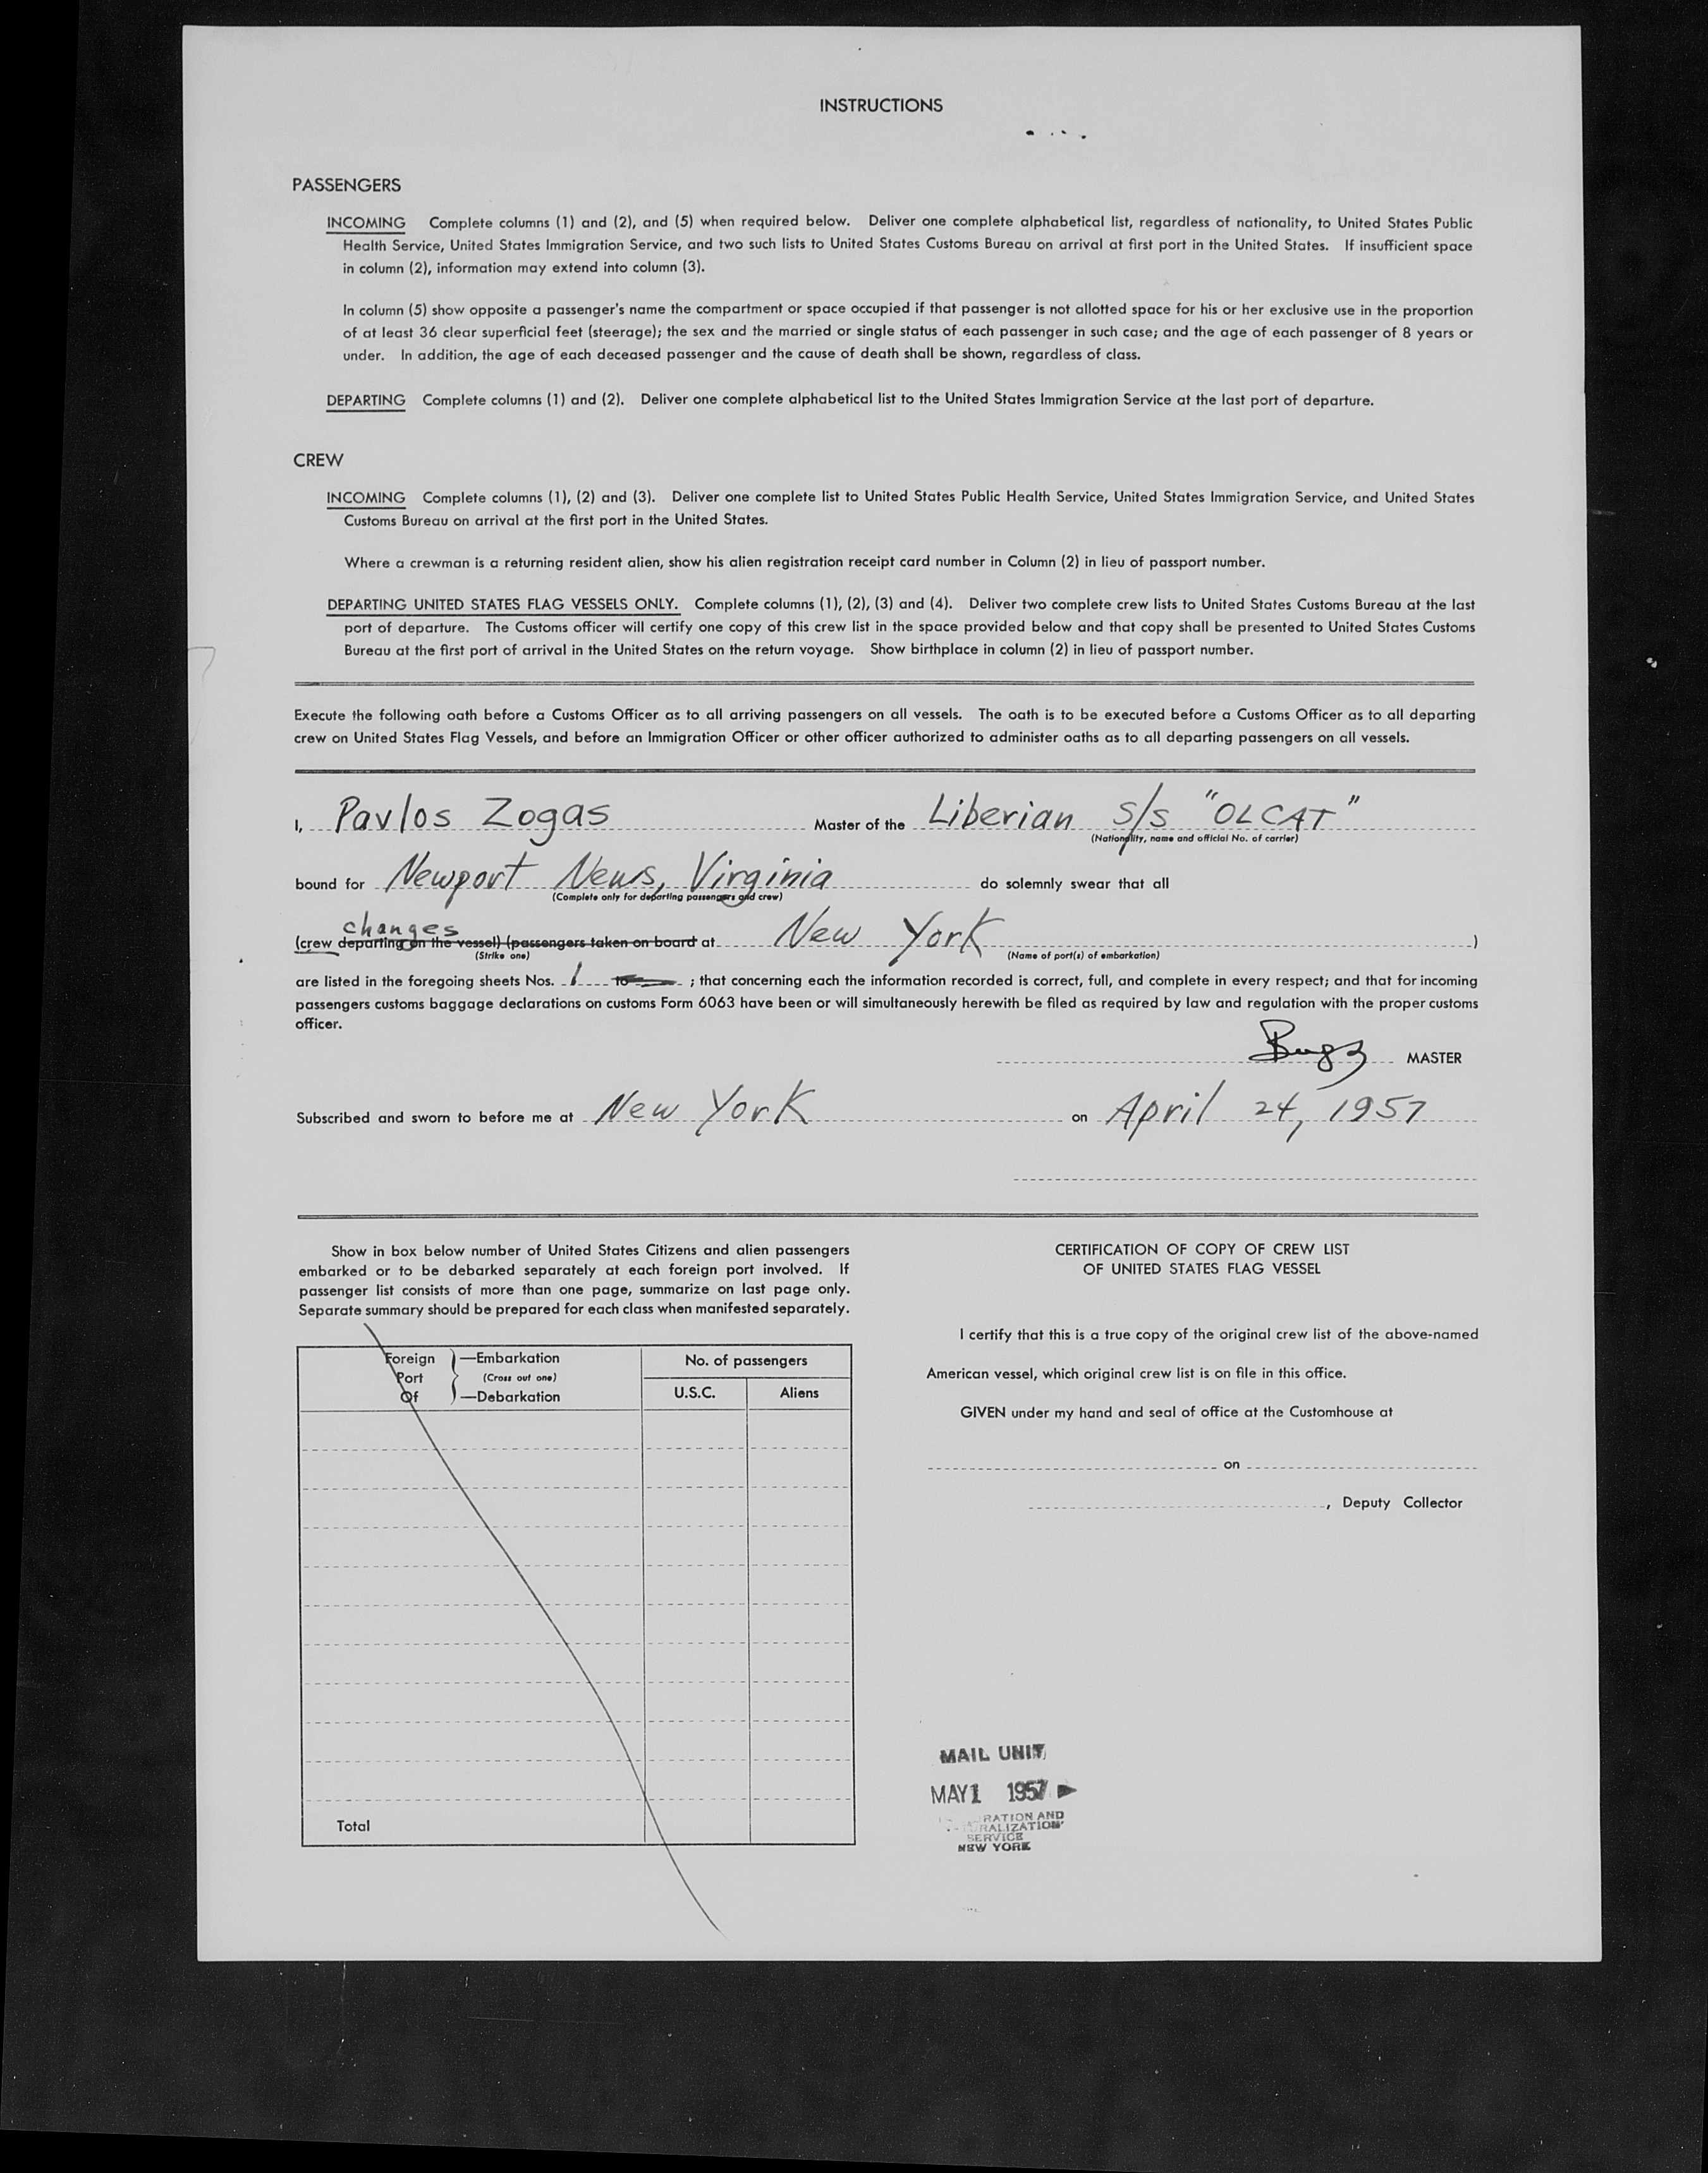 INSTRUCTIONS
PASSENGERS
INCOMING Complete columns (1) and (2), and (5) when required below. Deliver one complete alphabetical list, regardless of nationality, to United States Public
Health Service, United States Immigration Service, and two such lists to United States Customs Bureau on arrival at first port in the United States. If insufficient space
in column (2), information may extend into column (3).
In column (5) show opposite a passenger's name the compartment or space occupied if that passenger is not allotted space for his or her exclusive use in the proportion
of at least 36 clear superficial feet (steerage); the sex and the married or single status of each passenger in such case; and the age of each passenger of 8 years or
under. In addition, the age of each deceased passenger and the cause of death shall be shown, regardless of class.
DEPARTING Complete columns (1) and (2). Deliver one complete alphabetical list to the United States Immigration Service at the last port of departure.
CREW
INCOMING Complete columns (1), (2) and (3). Deliver one complete list to United States Public Health Service, United States Immigration Service, and United States
Customs Bureau on arrival at the first port in the United States.
Where a crewman is a returning resident alien, show his alien registration receipt card number in Column (2) in lieu of passport number.
DEPARTING UNITED STATES FLAG VESSELS ONLY. Complete columns (1), (2), (3) and (4). Deliver two complete crew lists to United States Customs Bureau at the last
port of departure. The Customs officer will certify one copy of this crew list in the space provided below and that copy shall be presented to United States Customs
Bureau at the first port of arrival in the United States on the return voyage. Show birthplace in column (2) in lieu of passport number.
Execute the following oath before a Customs Officer as to all arriving passengers on all vessels. The oath is to be executed before a Customs Officer as to all departing
crew on United States Flag Vessels, and before an Immigration Officer or other officer authorized to administer oaths as to all departing passengers on all vessels.
I, Pavlos Zogas Master of the Liberian S/s "OLCAT"
(Nationality, name and official No. of carrier)
bound for Newport News, Virginia do solemnly swear that all
(Complete only for departing passengers and crew)
changes
(crew departing on the vessel) (passengers taken on board at New York )
(Strike one) (Name of port(s) of embarkation)
are listed in the foregoing sheets Nos. 1 to ; that concerning each the information recorded is correct, full, and complete in every respect; and that for incoming
passengers customs baggage declarations on customs Form 6063 have been or will simultaneously herewith be filed as required by law and regulation with the proper customs
officer.
MASTER
Subscribed and sworn to before me at New York on April 24, 1957
Show in box below number of United States Citizens and alien passengers
embarked or to be debarked separately at each foreign port involved. If
passenger list consists of more than one page, summarize on last page only.
Separate summary should be prepared for each class when manifested separately.
Foreign —Embarkation No. of passengers
Port (Cross out one)
Of —Debarkation U.S.C. Aliens
Total
CERTIFICATION OF COPY OF CREW LIST
OF UNITED STATES FLAG VESSEL
I certify that this is a true copy of the original crew list of the above-named
American vessel, which original crew list is on file in this office.
GIVEN under my hand and seal of office at the Customhouse at
on
, Deputy Collector
MAIL UNIT
MAY 1 1957
RATION AND
RALIZATION
SERVICE
NEW YORK